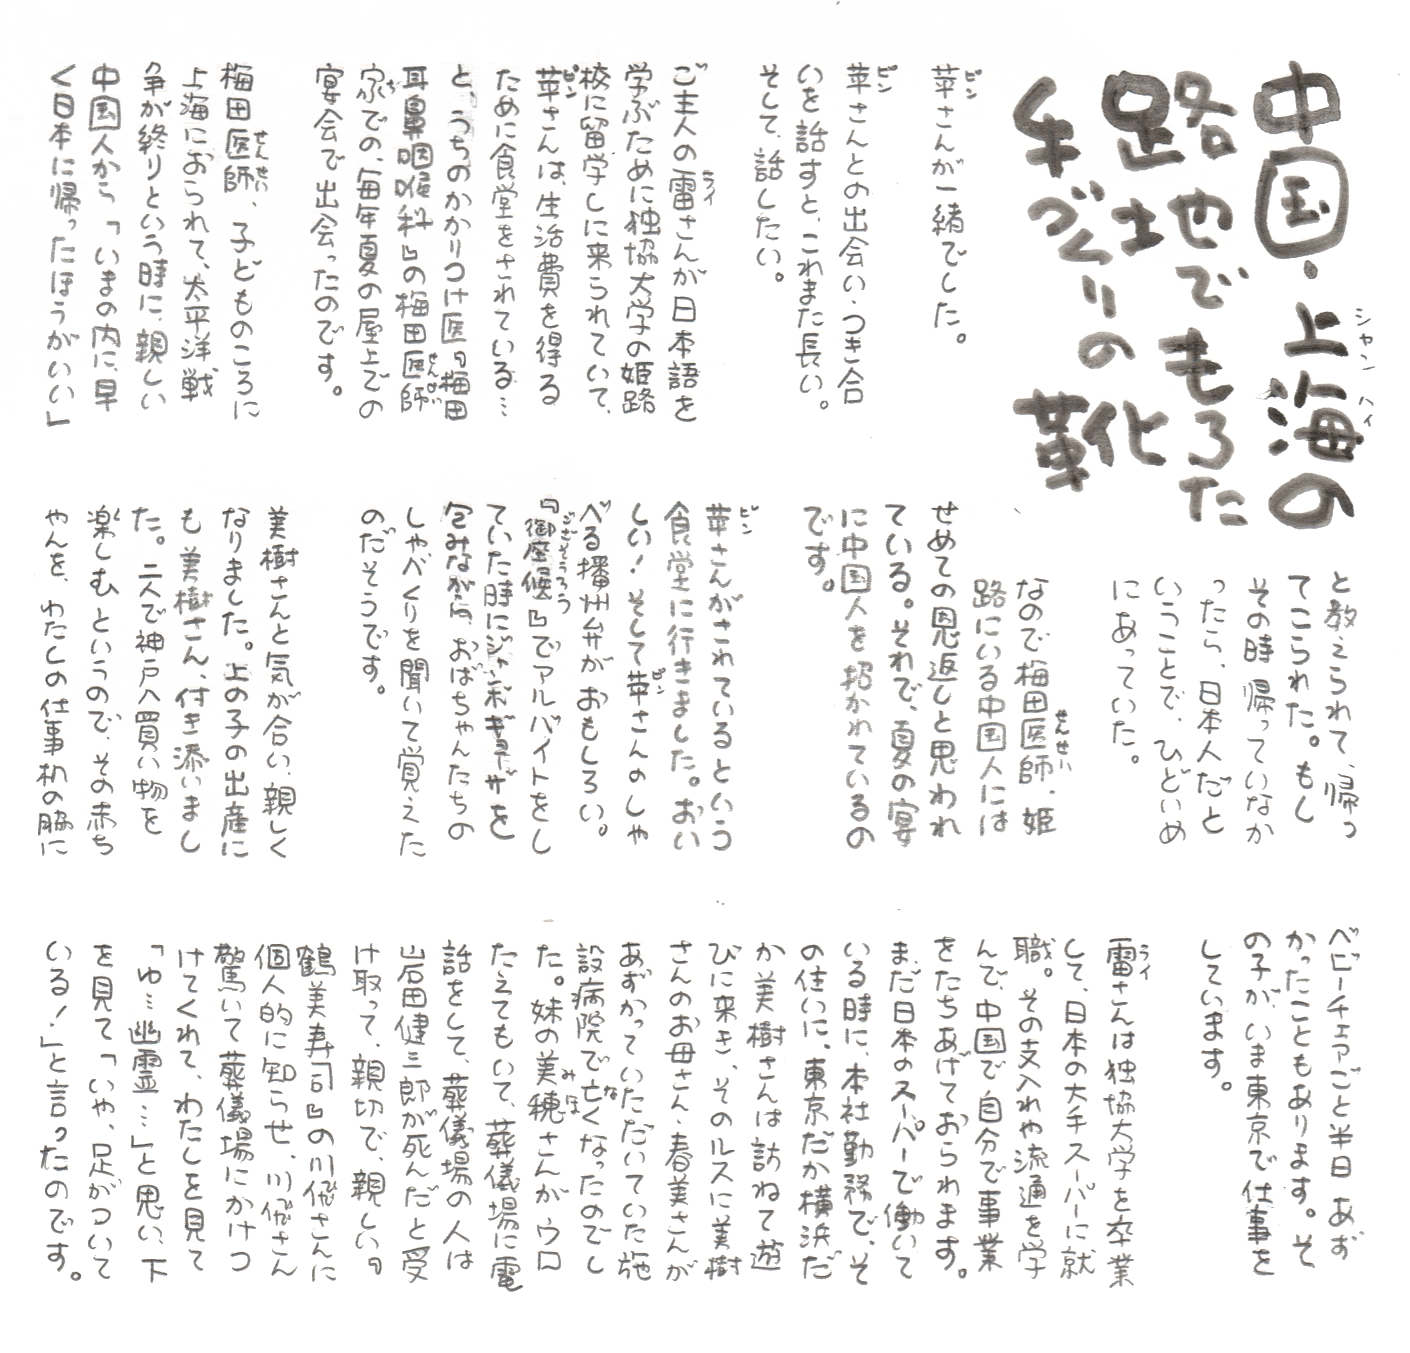 中国・上海の
路地でもろた
手づくりの
靴
苹さんが一緒でした。
苹さんとの出会い・つき合
いを話すと、これまた長い。
そして、話したい。
ご主人の雷さんが日本語を
学ぶために独協大学の姫路
校に留学しに来られていて、
苹さんは、生活費を得る
ために食堂をされている…
と、うちのかかりつけ医『梅田
耳鼻咽喉科』の梅田医師
家での、毎年夏の屋上での
宴会で出会ったのです。
梅田医師、子どものころに
上海におられて、太平洋戦
争が終りという時に、親しい
中国人から「いまの内に、早
く日本に帰ったほうがいい」
と教えられて、帰っ
てこられた。もし
その時帰っていなか
ったら、日本人だと
いうことで、ひどいめ
にあっていた。
なので梅田医師、姫
路にいる中国人には
せめての恩返しと思われ
ている。それで、夏の宴
に中国人を招かれているの
です。
苹さんがされているという
食堂に行きました。おい
しい！そして苹さんのしゃ
べる播州弁がおもしろい。
『御座候』でアルバイトをし
ていた時にジャンボギョーザを
包みながら、おばちゃんたちの
しゃべくりを聞いて覚えた
のだそうです。
美樹さんと気が合い、親しく
なりました。上の子の出産に
も美樹さん、付き添いまし
た。二人で神戸へ買い物を
楽しむというので、その赤ち
ゃんを、わたしの仕事机の脇に
ベビーチェアごと半日あず
かったこともあります。そ
の子が、いま東京で仕事を
しています。
雷さんは独協大学を卒業
して、日本の大手スーパーに就
職。その支入れや流通を学
んで、中国で自分で事業
をたちあげておられます。
まだ日本のスーパーで働いて
いる時に、本社勤務で、そ
の住いに。東京だか横浜だ
か美樹さんは訪ねて遊
びに来き、そのルスに美樹
さんのお母さん・春美さんが
あずかっていただいていた施
設病院で亡くなったのでし
た。妹の美穂さんがウロ
たえてもいて、葬儀場に電
話をして、葬儀場の人は
岩田健三郎が死んだと受
け取って、親切で、親しい『
鶴美寿司』の川俣さんに
個人的に知らせ、川俣さん
驚いて葬儀場にかけつ
けてくれて、わたしを見て
「ゆ…幽霊…」と思い、下
を見て「いや、足がついて
いる！」と言ったのです。